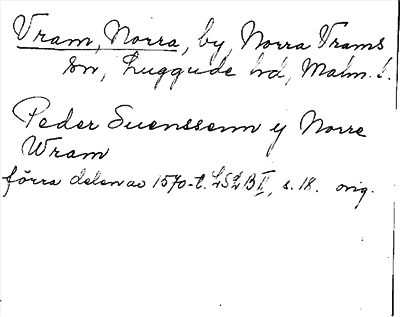 Vram, Norra, by, Norra Vrams
sn, Luggude hd, Malm. l.
Peder Suenssenn y Norre
Wram
förra delen av 1570-t. LSLB II, s. 18. orig.